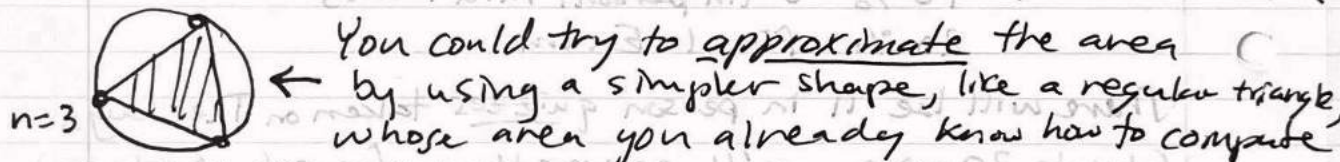 You could try to approximate the area
← by using a simpler shape, like a regular triangle,
n=3 whose area you already know how to compute